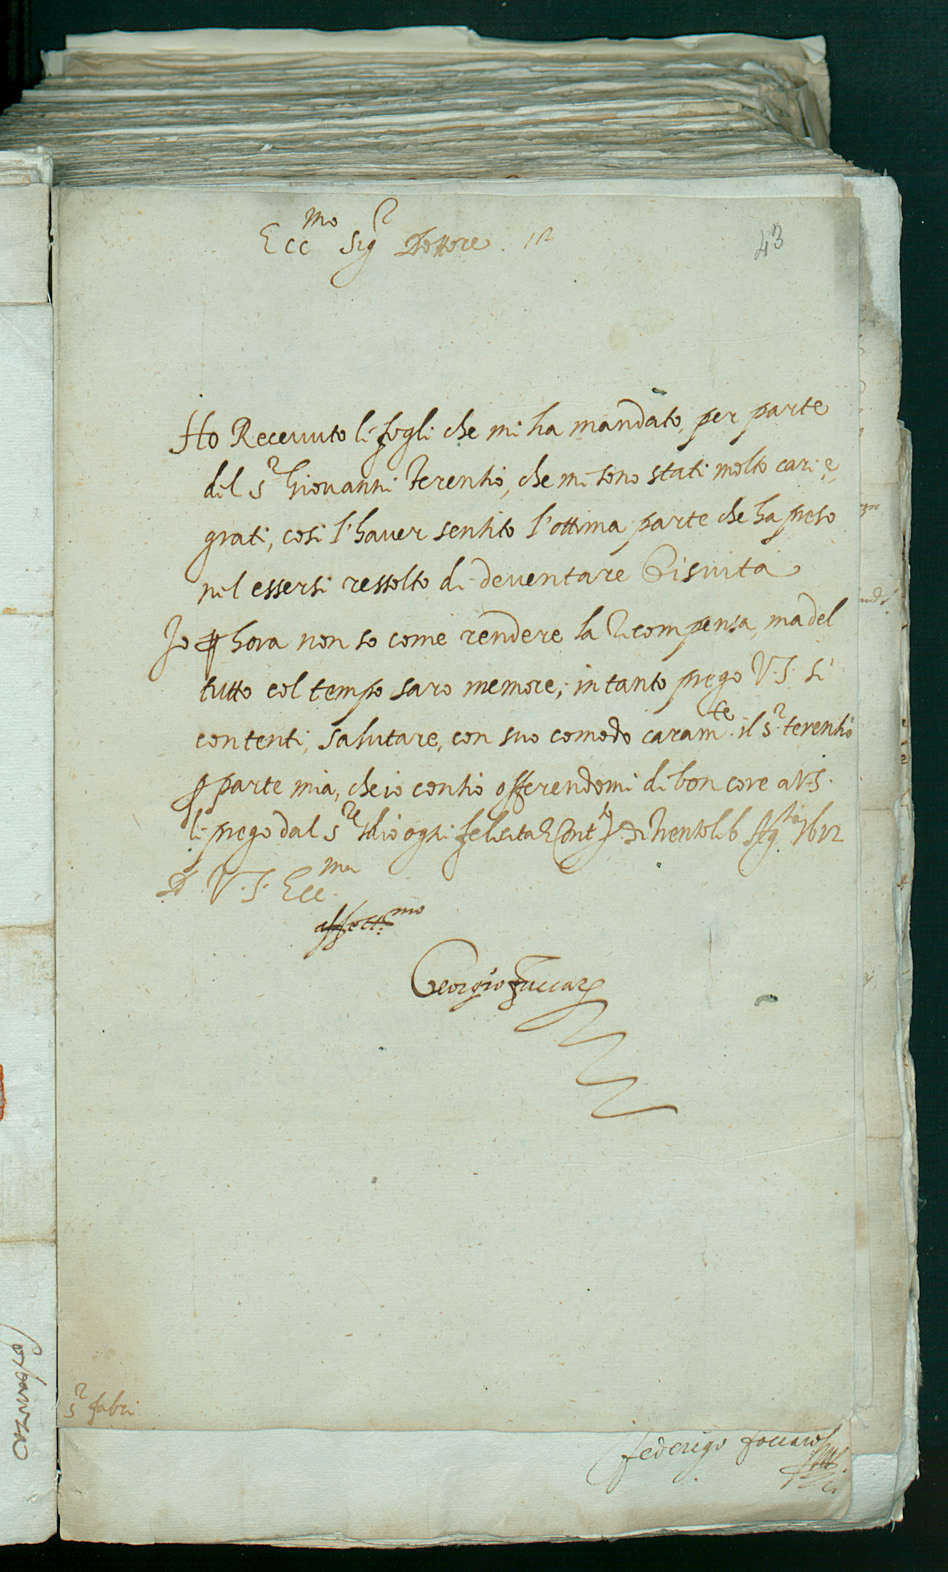 Ecc.mo Sig.r Dottore.
43
Ho Receuuto li fogli che mi ha mandato, per parte
del s.r Giovanni Terentio, che mi sono stati molto cari, e
grati, cosi l'haver sentito l'ottima parte che ha preso
nel essersi ressolto di deventare Gisuita
Jo p hora non so come rendere la Recompensa, ma del
tutto col tempo saro memore, in tanto prego V.S. si
contenti, salutare, con suo comodo caram.te il s.r terentio
p parte mia, che io offerendomi di bon core a V.S.
li prego dal s.re Idio ogni felicita 1612
D V.S. Ecc.ma
affett.mo
Georgio Fuccari
s.r fabri
federigo